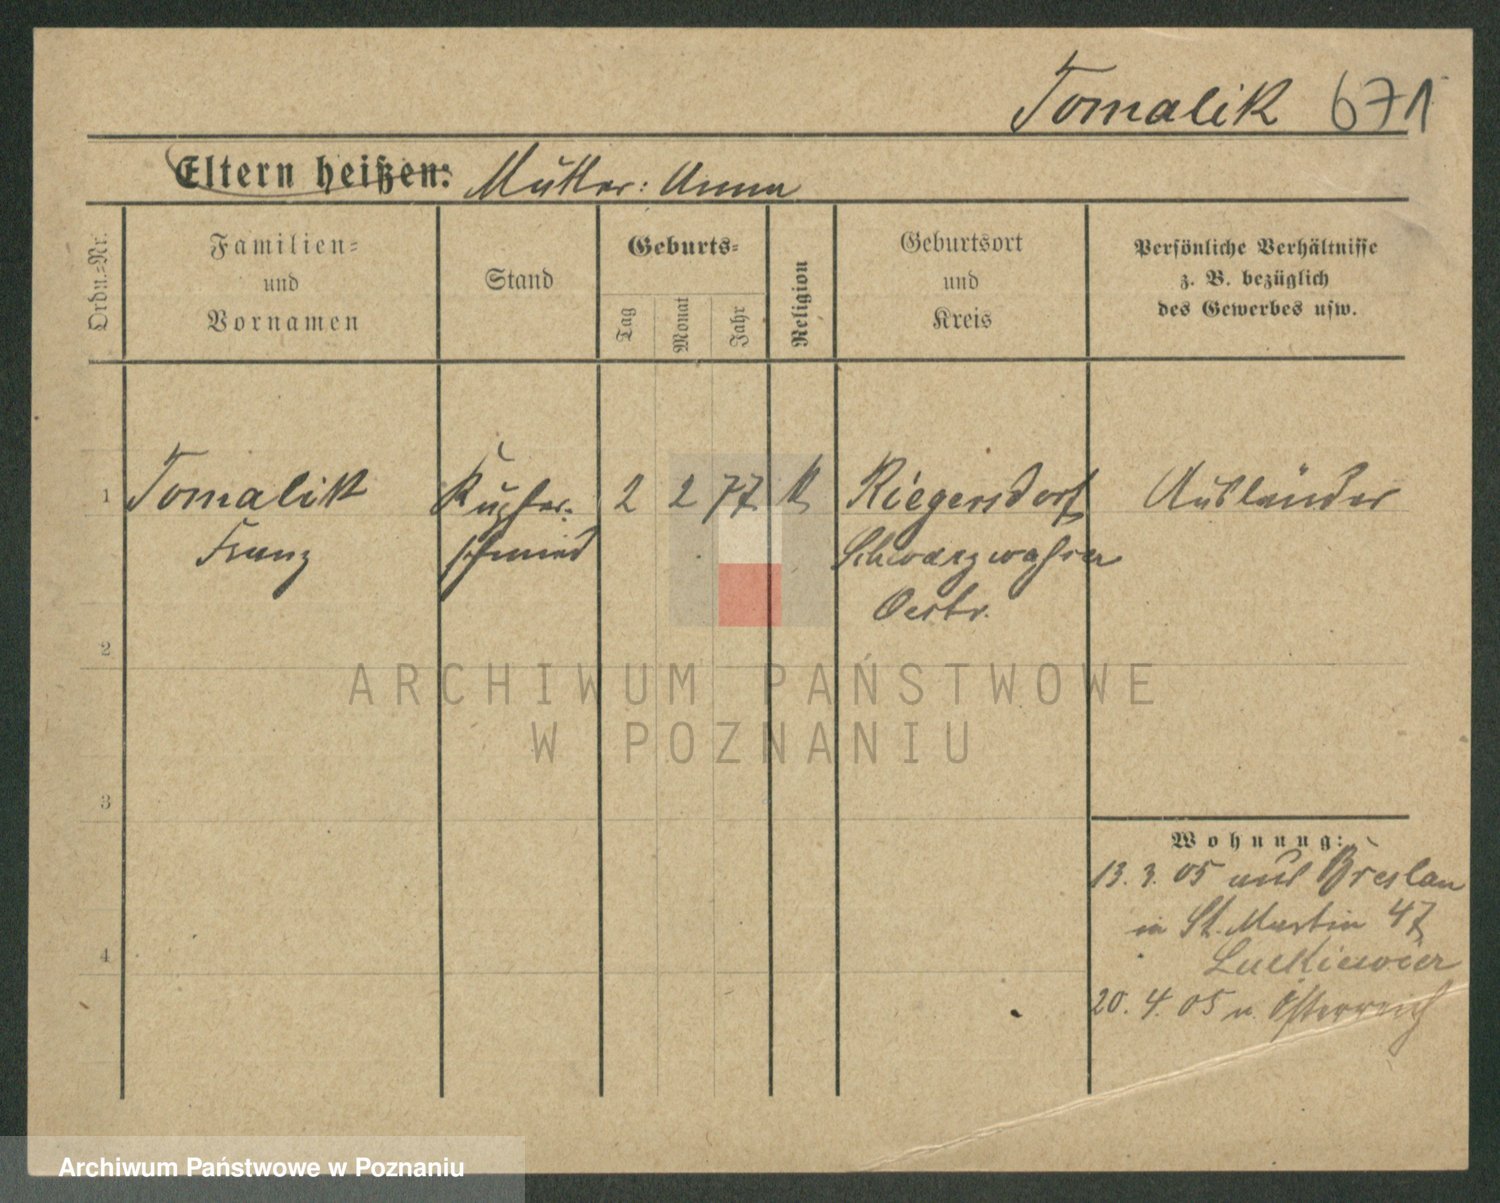 Tomalik 671
Eltern heißen: Mutter: Anna
Ordn.-Nr.
Familien-
und
Vornamen
Stand
Geburts-
Tag
Monat
Jahr
Religion
Geburtsort
und
Kreis
Persönliche Verhältnisse
z. B. bezüglich
des Gewerbes usw.
1 Tomalik Kupfer- 2 2 77 k Riegersdorf Ausländer
Franz schmied Schwarzwasser
Oestr.
2
3
4
Wohnung:
13. 3. 05 aus Breslau
in St. Martin 47
20. 4. 05 n. Österreich
ARCHIWUM PAŃSTWOWE
W POZNANIU
Archiwum Państwowe w Poznaniu